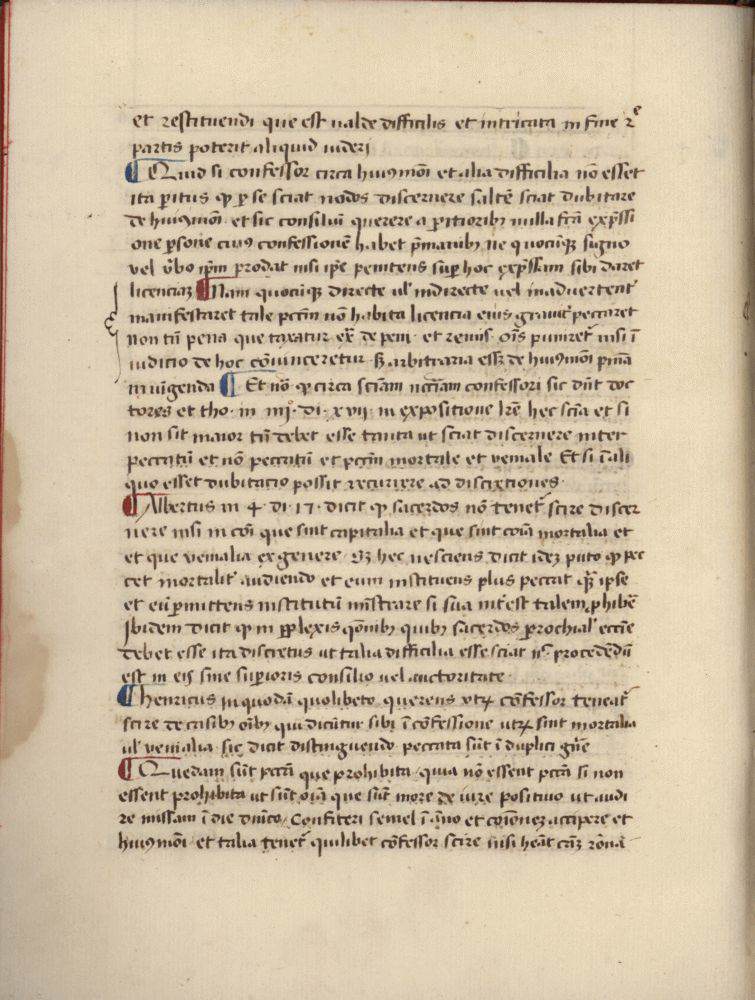 et restituendi que est ualde difficilis et intricata in fine 2ᵉ
partis poterit aliquid uideri
¶ Quid si confessor circa huiꝰmōi et alia difficilia nō esset
ita pitus ꝙ p se sciat nodos discernere saltē sciat dubitare
de huiꝰmōi et sic consiliū querere a pitioribꝫ nulla fcā exp̄ssi
one psone cuiꝰ confessionē habet p̄manibꝫ ne quocūqꝫ signo
vel v̄bo ip̄m prodat nisi ip̄e penitens sup hoc exp̄ssam sibi daret
licenciaꝫ ¶ Nam quocūqꝫ directe ul' indirecte uel inaduertent'
manifestaret tale pctm̄ nō habita licencia eius grauit' peccaret
non tn̄ pena que taxatur ex̄ de peni et remis. oīs puniret' nisi ī
iudicio de hoc cōuinceretur sꝫ arbitraria essꝫ de huiꝰmōi pena
iniūgenda ¶ Et nō ꝙ circa sciām necc̄iam confessori sic dn̄t doc
tores et tho. in iiij. di. xvij. in expositione lr̄e hec scīa et si
non sit maior tn̄ debet esse tanta ut sciat discernere inter
peccatū et nō peccatū et pctm̄ mortale et veniale Et si ī ali
quo esset dubitatio possit recurrere ad discretiones.
¶ Albertus in 4. di. 17. dicit ꝙ sacerdos nō tenet' scire discer
nere nisi in cōi que sint capitalia et que sint cōia mortalia et
et que venialia ex genere Sꝫ hec nesciens dicit ideꝫ puto ꝙ pec
cet mortalit' audiendo et eum instituens plus peccat q̄ꝫ ipse
et eū pmittens institutū mīstrare si sua int'est talem phibē
Ibidem dicit ꝙ in pplexis qōnibꝫ quibꝫ sacerdos prochial' eccīe
debet esse ita discretus ut talia difficilia esse sciat nō procedēdū
est in eis sine supioris consilio uel auctoritate.
¶ Henricus in quodā quolibeto querens vtꝝ cōfessor teneat'
scire de casibꝫ oībꝫ qui dicūtur sibi ī cōfessione utꝝ sint mortalia
ul' venialia sic dicit distinguendo peccata sūt ī duplici gn̄e
¶ Quedam sūt pctā que prohibita quia nō essent pctā si non
essent prohibita ut sūt oīa que sūt more de iure positiuo ut audi
re missam ī die dn̄ico, Confiteri semel ī āno et cōioneꝫ accipere et
huiꝰmōi et talia tenet' quilibet cōfessor scire nisi heāt cāꝫ